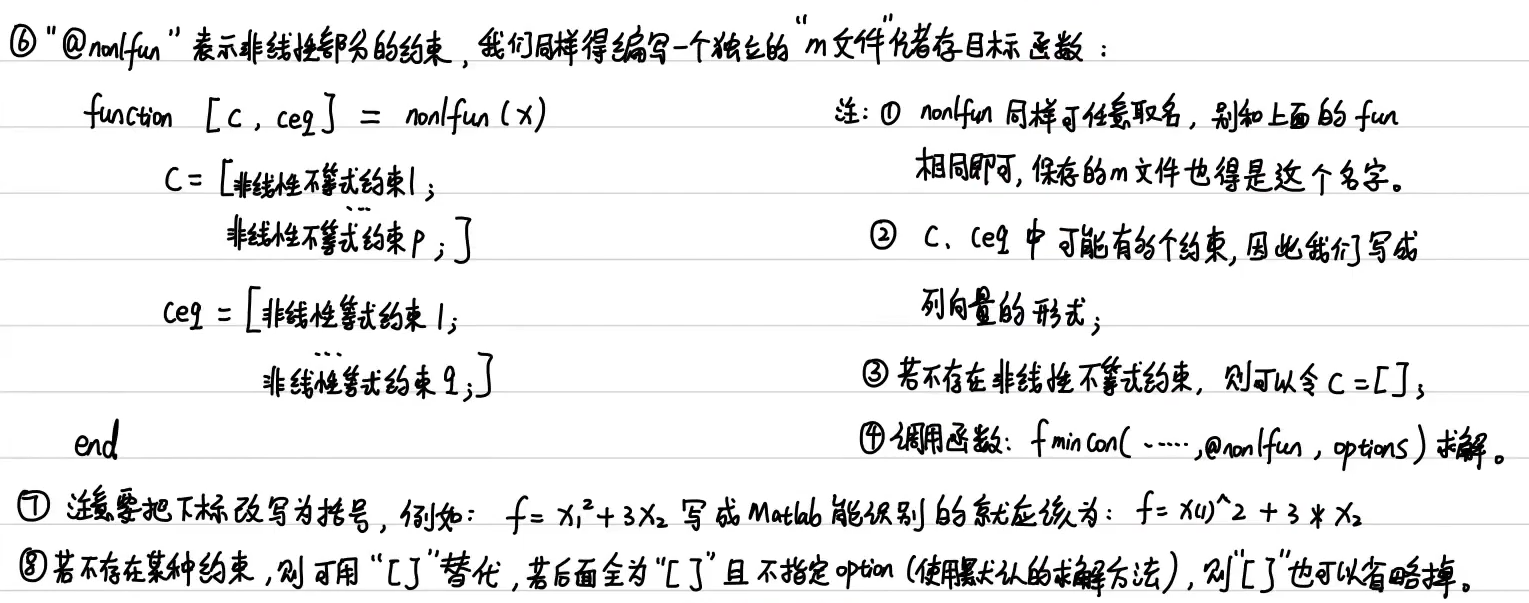 ⑥ "@nonlfun" 表示非线性部分的约束，我们同样得编写一个独立的"m文件"储存目标函数：
function [c, ceq] = nonlfun(x)
C = [非线性不等式约束1;
...
非线性不等式约束p;]
ceq = [非线性等式约束1;
...
非线性等式约束q;]
end
注：① nonlfun 同样可任意取名，别和上面的 fun
相同即可，保存的m文件也得是这个名字。
② C、ceq 中可能有多个约束，因此我们写成
列向量的形式；
③ 若不存在非线性不等式约束，则可以令 C = []；
④ 调用函数：fmincon( ······, @nonlfun, options) 求解。
⑦ 注意要把下标改写为括号，例如：f = x₁² + 3x₂ 写成 Matlab 能识别的就应该为：f = x(1)^2 + 3 * x₂
⑧ 若不存在某种约束，则可用"[]"替代，若后面全为"[]"且不指定option（使用默认的求解方法），则"[]"也可以省略掉。